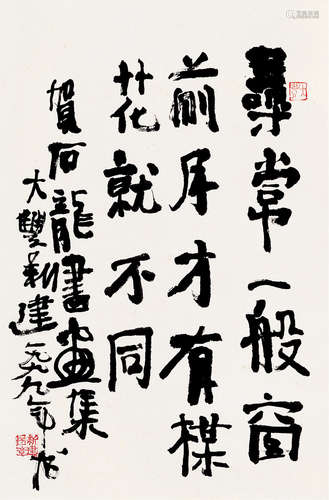 尋常一般窗
前月才有楳
花就不同
賀石龍書畫集
大豐新建一九九年